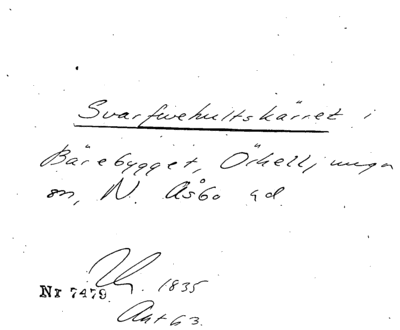 Svarfvehultskärret i
Bärebygget, Örkelljunga
sn, N. Åsbo hd.
Nr 7479. 1835
Akt 63.